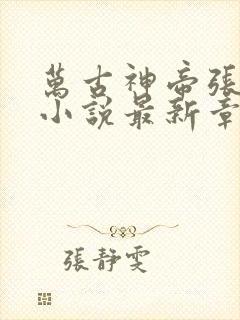 萬古神帝張
小說最新章
張靜雯